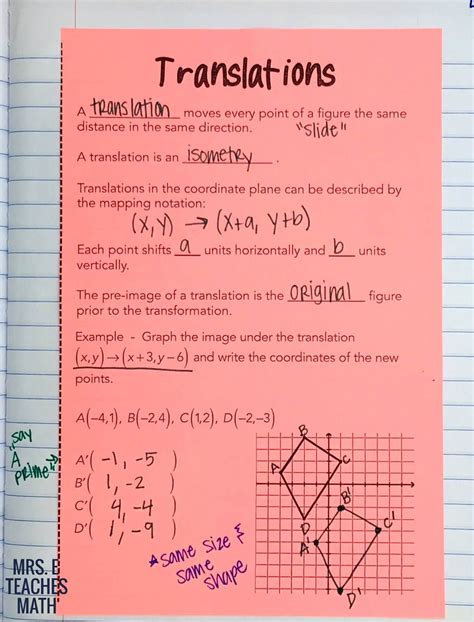 Translations
A translation moves every point of a figure the same
distance in the same direction. "slide"
A translation is an isometry .
Translations in the coordinate plane can be described by
the mapping notation:
(x,y) → (x+a, y+b)
Each point shifts a units horizontally and b units
vertically.
The pre-image of a translation is the original figure
prior to the transformation.
Example - Graph the image under the translation
(x,y)→(x+3,y−6) and write the coordinates of the new
points.
A(−4,1), B(−2,4), C(1,2), D(−2,−3)
"say
A
prime"
A'( -1, -5 )
B'( 1, -2 )
C'( 4, -4 )
D'( 1, -9 )
*same size &
same
shape
B
A
C
D
B'
A'
C'
D'
MRS. E
TEACHES
MATH